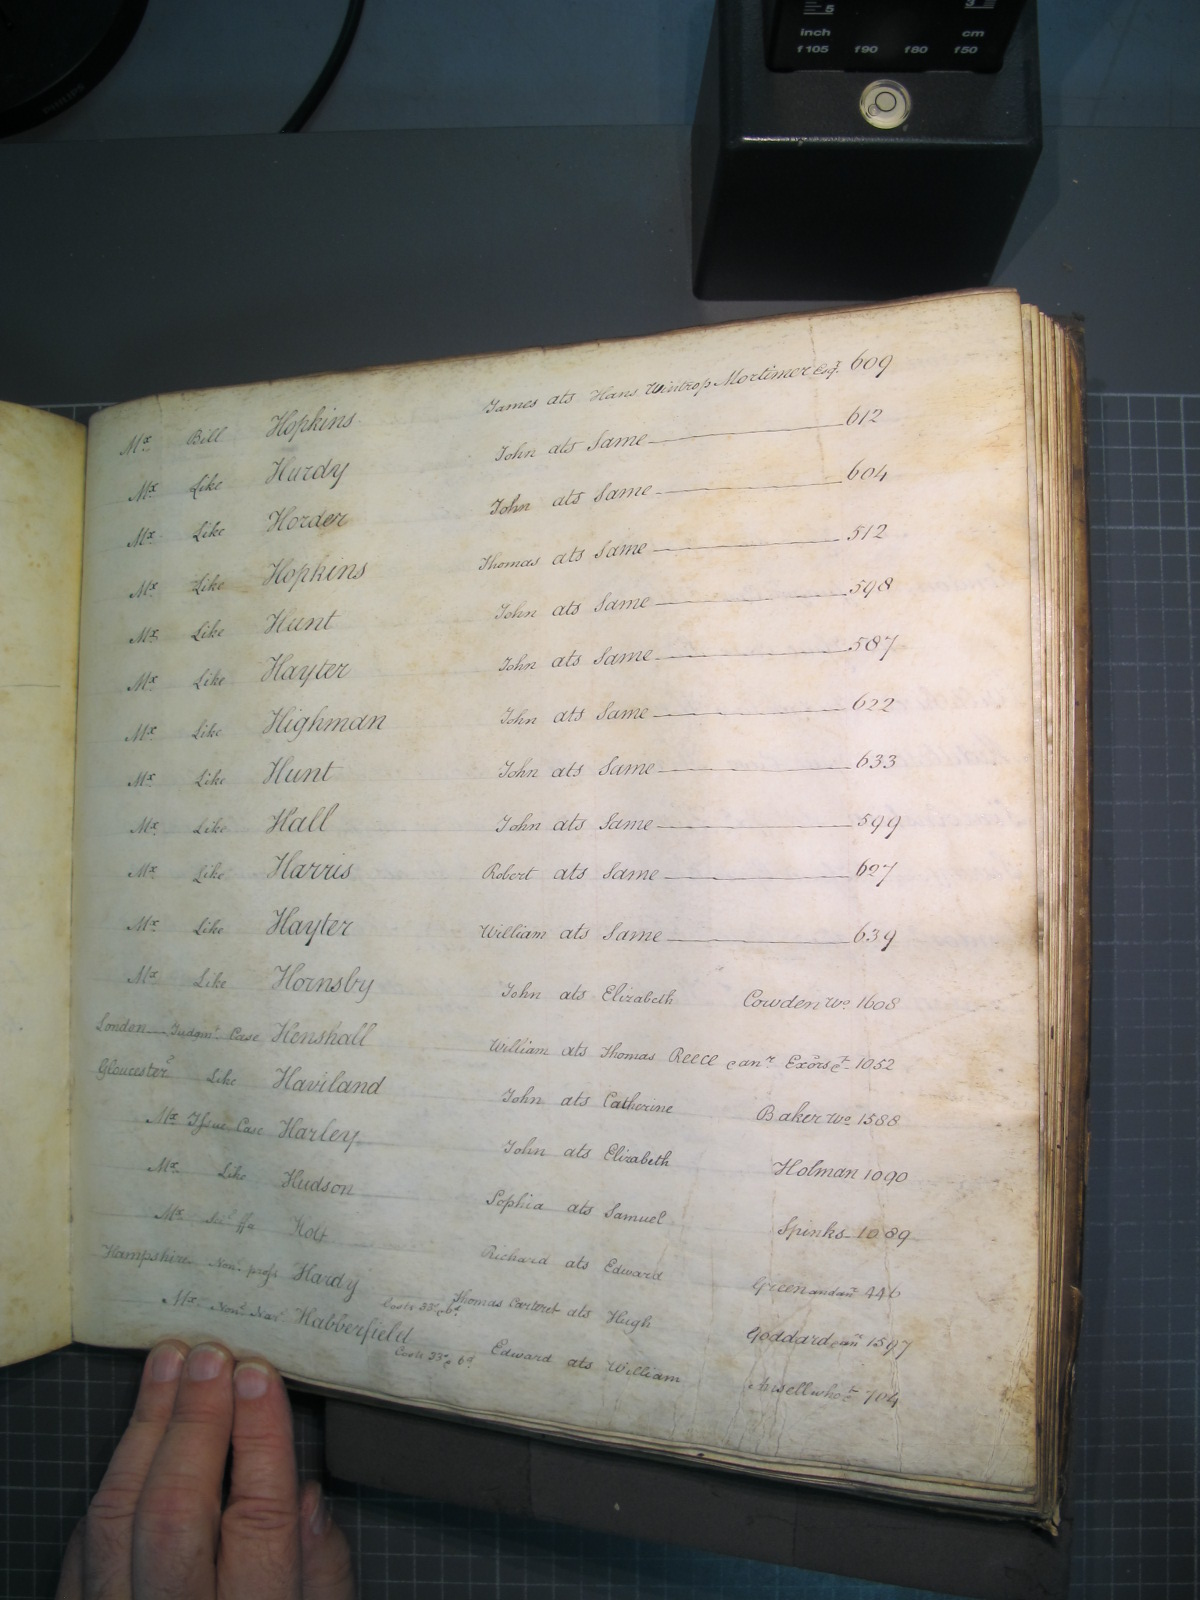 5
3
inch cm
f105 f90 f80 f50
PHILIPS
Mx Bill Hopkins James ats Hans Wintrop Mortimer Esqr. 609
Mx Like Hurdy John ats Same 612
Mx Like Horder John ats Same 604
Mx Like Hopkins Thomas ats Same 512
Mx Like Hunt John ats Same 598
Mx Like Hayter John ats Same 587
Mx Like Highman John ats Same 622
Mx Like Hunt John ats Same 633
Mx Like Hall John ats Same 599
Mx Like Harris Robert ats Same 627
Mx Like Hayter William ats Same 639
Mx Like Hornsby John ats Elizabeth Cowden Wo. 1608
London Judgmt. Case Henshall William ats Thomas Reece & anr. Exors &c. 1052
Gloucester Like Haviland John ats Catherine Baker Wo. 1588
Mx Issue Case Harley John ats Elizabeth Holman 1090
Mx Like Hudson Sophia ats Samuel Spinks 1089
Mx ffa Holt Richard ats Edward Green and anr. 446
Hampshire Non. pross Hardy Costs 33s. 6d. Thomas Carteret ats Hugh Goddard & an. 1597
Mx Habberfield Costs 33s. 6d. Edward ats William 704